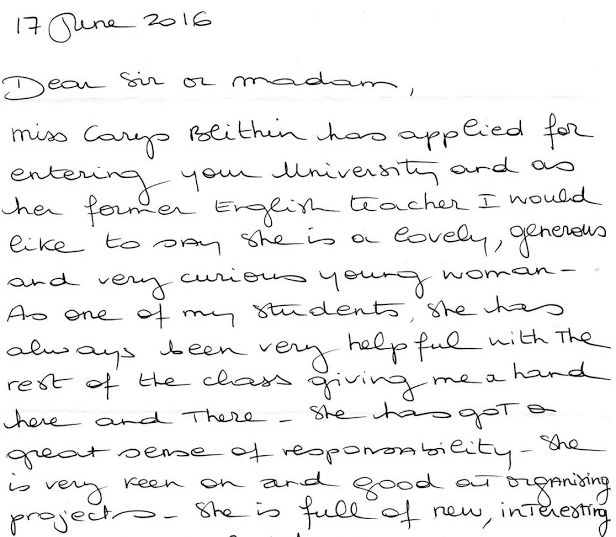 17 June 2016
Dear Sir or madam,
miss Carys Blithin has applied for
entering your University and as
her former English teacher I would
like to say she is a lovely, generous
and very curious young woman -
As one of my students, she has
always been very helpful with the
rest of the class giving me a hand
here and there - she has got a
great sense of responsability - she
is very keen on and good at organising
projects - she is full of new, interesting